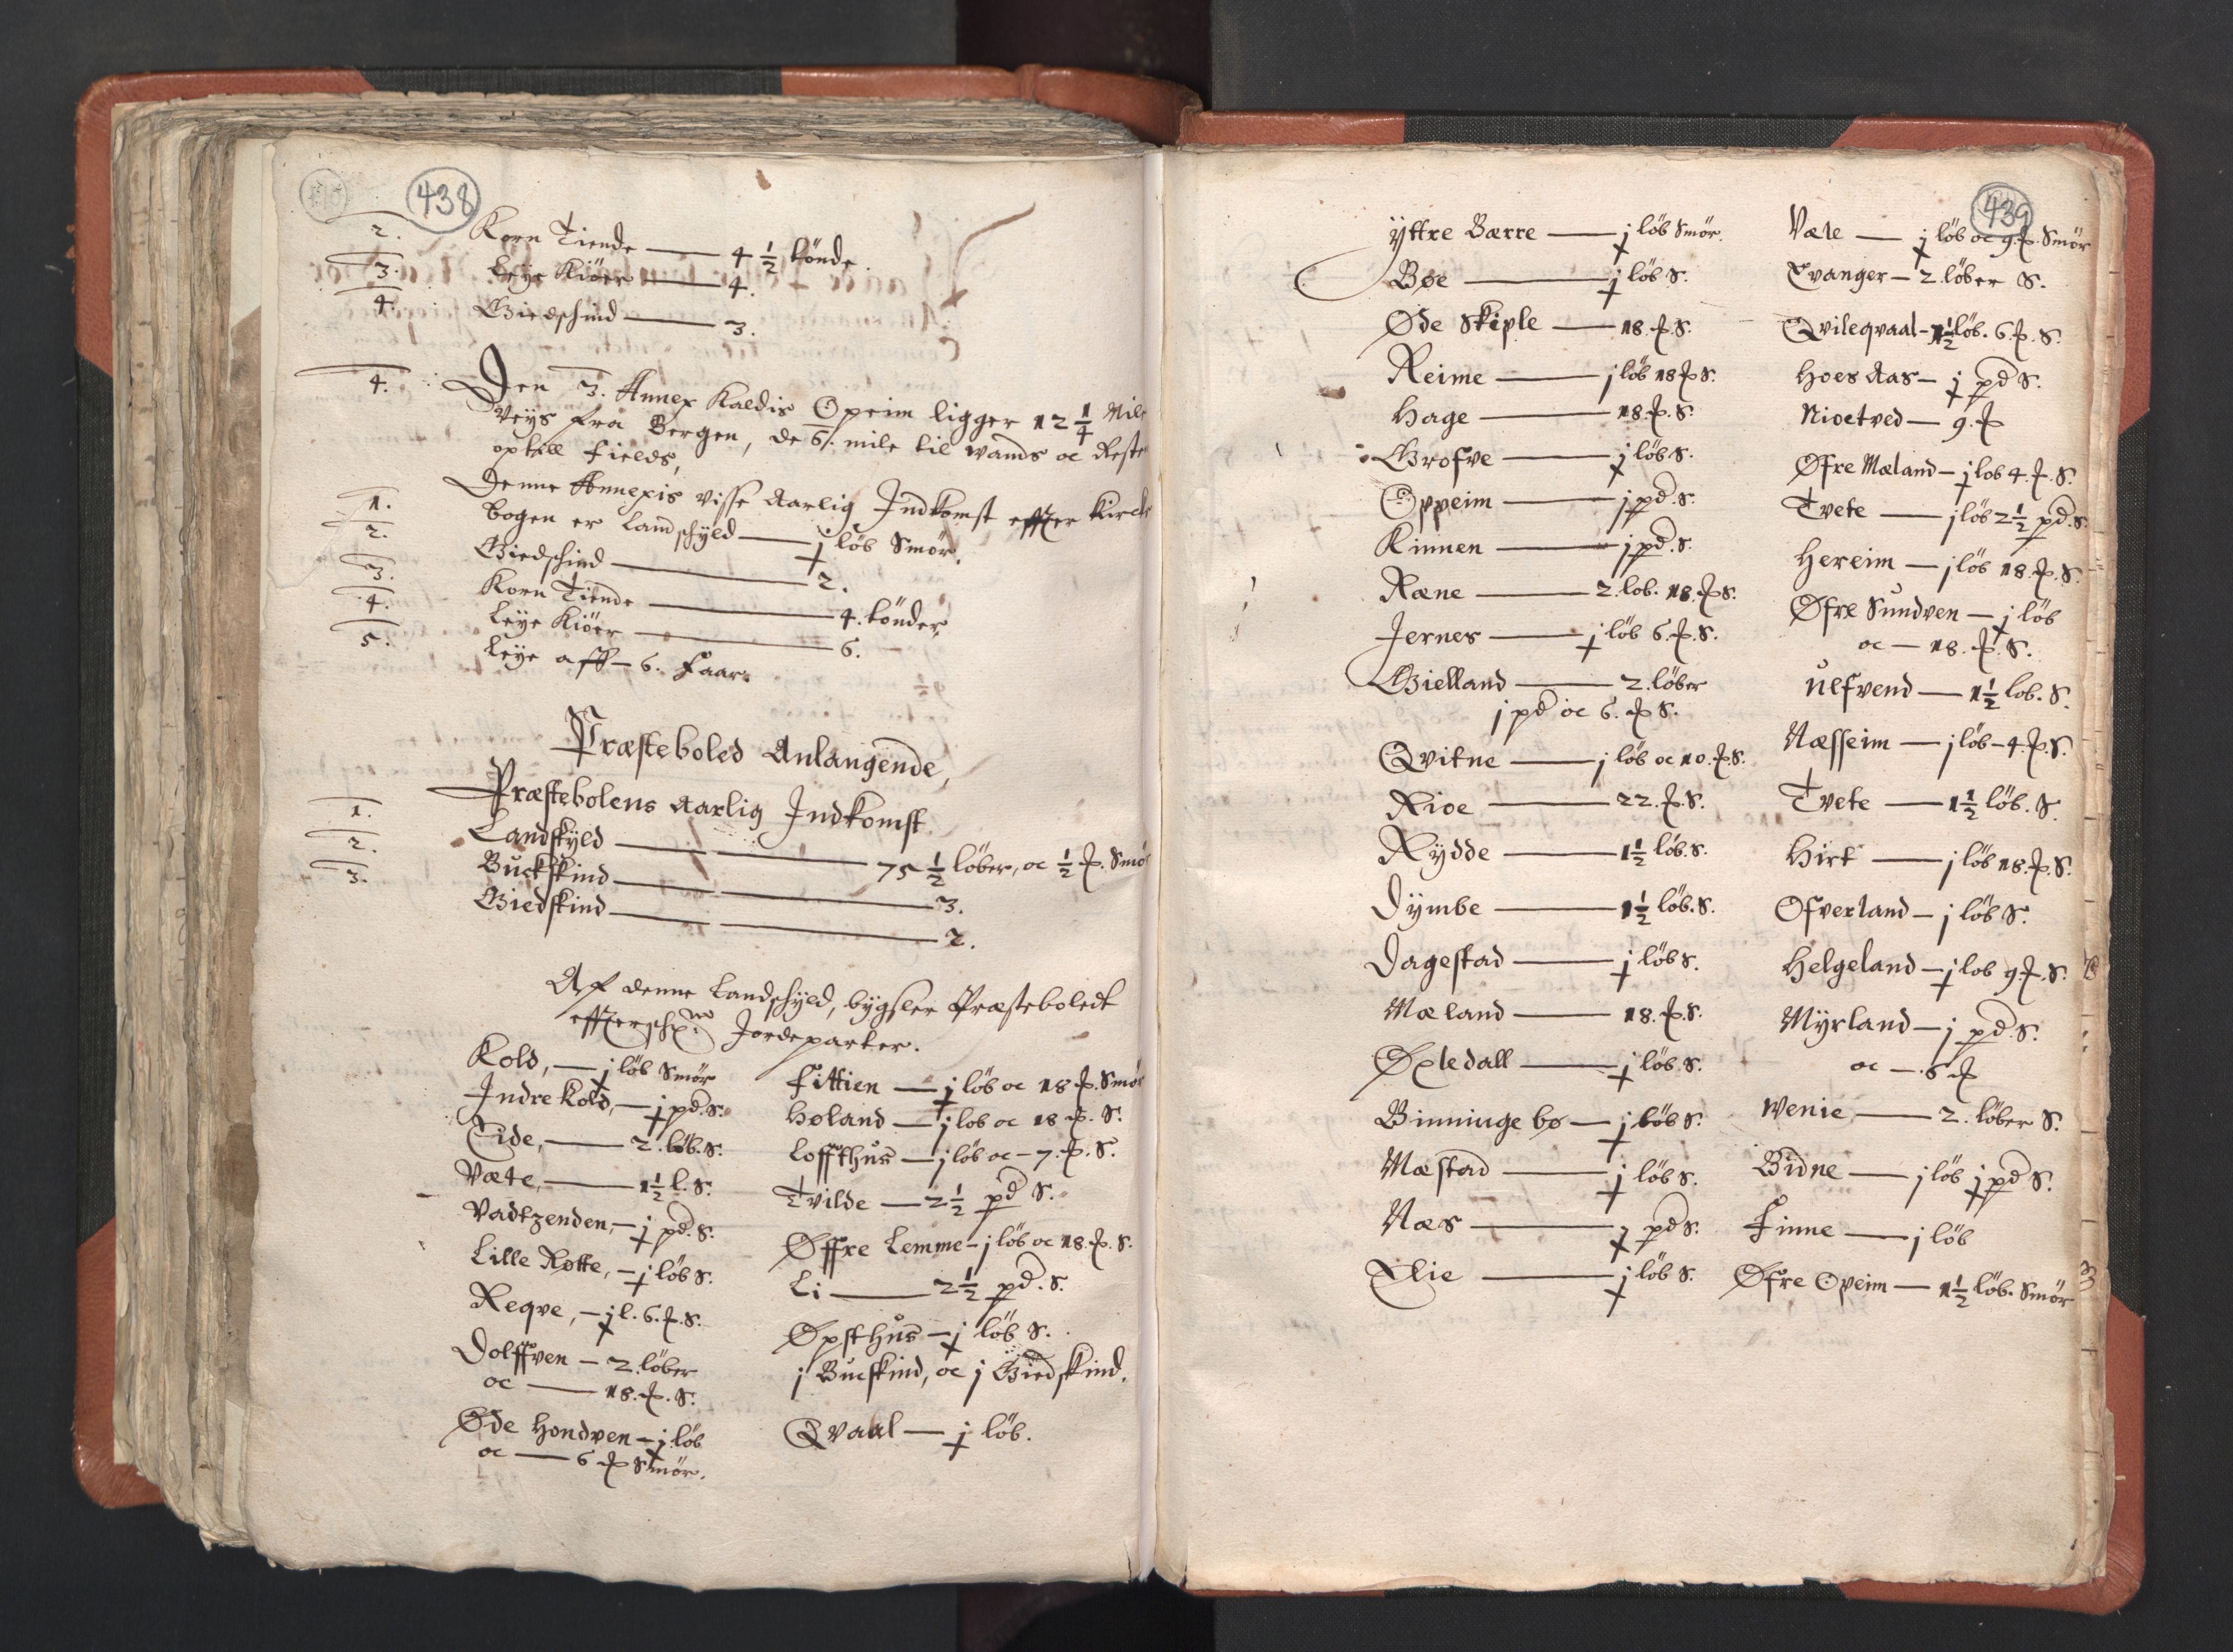 438
2. Korn Tiende — 4 1/2 tönde.
3. Leÿe Kiöer — 4.
4. Giedschind — 3.
4. Den 3. Annex Kaldis Opeim ligger 12 1/4 Mile
Veÿs fra Bergen, de 6. mile til vands oc Reste
optill fields,
Denne Annexis visse Aarlig Indkomst effter Kircke
1. bogen er Landschÿld — j löb Smör.
2. Giedschind — 2.
3. Korn Tiende — 4. tönder,
4. Leÿe Kiöer — 6.
5. Leÿe aff — 6. Faar.
Præsteboled Anlangende,
Præstebolens Aarlig Indkomst
1. Landskÿld — 75 1/2 löber, oc 1/2 ℔. Smör
2. Buckskind — 3.
3. Giedskind — 2.
Af denne Landschÿld, bÿgsler Præsteboledt
effterschne Jordeparter.
Kold, — j löb Smör
Indre Kold, — j pd. S.
Tide, — 2. löb. S.
Væte, — 1 1/2 l. S.
Vadtzenden, — j pd. S.
Lille Røtte, — j löb S.
Reqve, — j l. 6. ℔. S.
Dolffven — 2. löber
oc — 18. ℔. S.
Øde Hondven — j löb
oc — 6 ℔ Smör.
Fittien — j löb oc 18 ℔. Smör
Høland — j löb oc 18 ℔. S.
Loffthus — j löb oc — 7. ℔. S.
Tvilde — 2 1/2 pd S.
Øffre Lemme — j löb oc 18. ℔. S.
Li — 2 1/2 pd. S.
Øpsthus — j löb S.
j Bucskind, oc j Giedskind.
Qvaal — j löb.
439
Ÿttre Bærre — j löb Smör.
Bøe — j löb S.
Øde Skiple — 18. ℔. S.
Reime — j löb 18 ℔ S.
Hage — 18. ℔. S.
Grofve — j löb S.
Oppeim — j pd. S.
Kinnen — j pd. S.
Ræne — 2. löb. 18. ℔ S.
Jernes — j löb 6. ℔. S.
Gielland — 2. löber
j pd oc 6. ℔ S.
Qvitne — j löb oc 10. ℔. S.
Rioe — 22. ℔. S.
Rÿdde — 1 1/2 löb. S.
Dÿmbe — 1 1/2 löb. S.
Dagestad — j löb S.
Mæland — 18. ℔. S.
Øxledall — j löb. S.
Binninge bø — j löb S.
Mæstad — j löb S.
Næs — j pd S.
Elie — j löb S.
Væle — j löb oc 9. ℔. Smör
Evanger — 2. löber S.
Qvileqvaal — 1 1/2 löb. 6. ℔. S.
Hoes Aas — j pd S.
Nioetved — 9. ℔
Øfre Mæland — j löb 4. ℔. S.
Tvete — j löb 2 1/2 pd. S.
Hereim — j löb 18. ℔. S.
Øfre Sundven — j löb
oc — 18. ℔. S.
Ulfvend — 1 1/2 löb. S.
Næsseim — j löb — 4. ℔. S.
Tvete — 1 1/2 löb. S.
Hirt — j löb 18. ℔. S.
Ofverland — j löb S.
Helgeland — j löb 9 ℔. S.
Mÿrland — j pd S.
oc — 6 ℔
Wenie — 2. löber S.
Bidne — j löb j pd S.
Finne — j löb
Øfre Opeim — 1 1/2 löb. Smör